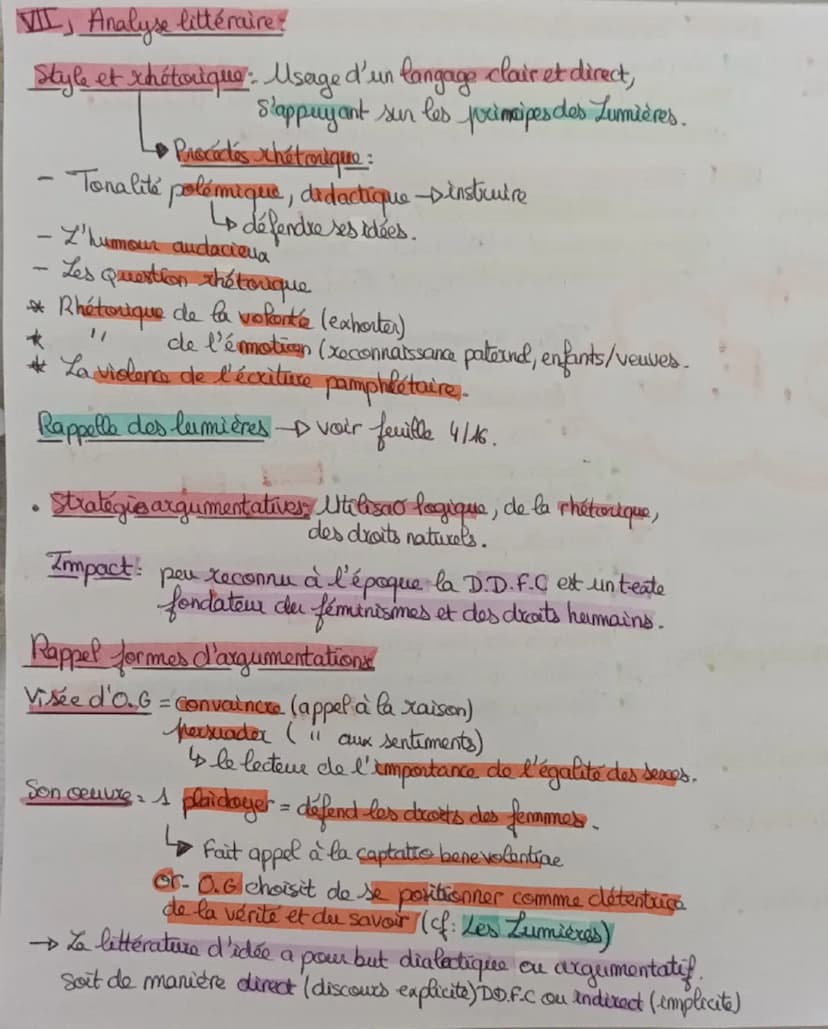 VII, Analyse littéraire:
Style et rhétorique: Usage d'un langage clair et direct,
s'appuyant sur les principes des Lumières.
Procédés rhétorique:
- Tonalité polémique, didactique → instruire
↳ défendre ses idées.
- L'humour audacieux
- Les question rhétorique
* Rhétorique de la volonté (exhorter)
* " de l'émotion (reconnaissance paternel, enfants/veuves.
* La violence de l'écriture pamphlétaire.
Rappelle des lumières → voir feuille 4/16.
• Stratégies argumentatives: Utilisa° logique, de la rhétorique,
des droits naturels.
Impact: peu reconnu à l'époque la D.D.F.C est un texte
fondateur du féminismes et des droits humains.
Rappel formes d'argumentations
Visée d'O.G = convaincre (appel à la raison)
persuader ( " aux sentiments)
↳ le lecteur de l'importance de l'égalité des sexes.
Son oeuvre = 1 plaidoyer = défend les droits des femmes.
↳ Fait appel à la captatio benevolentiae
or - O.G choisit de se positionner comme détentrice
de la vérité et du savoir (cf: Les Lumières)
→ La littérature d'idée a pour but dialectique ou argumentatif.
Soit de manière direct (discours explicite) D.D.F.C ou indirect (implicite)